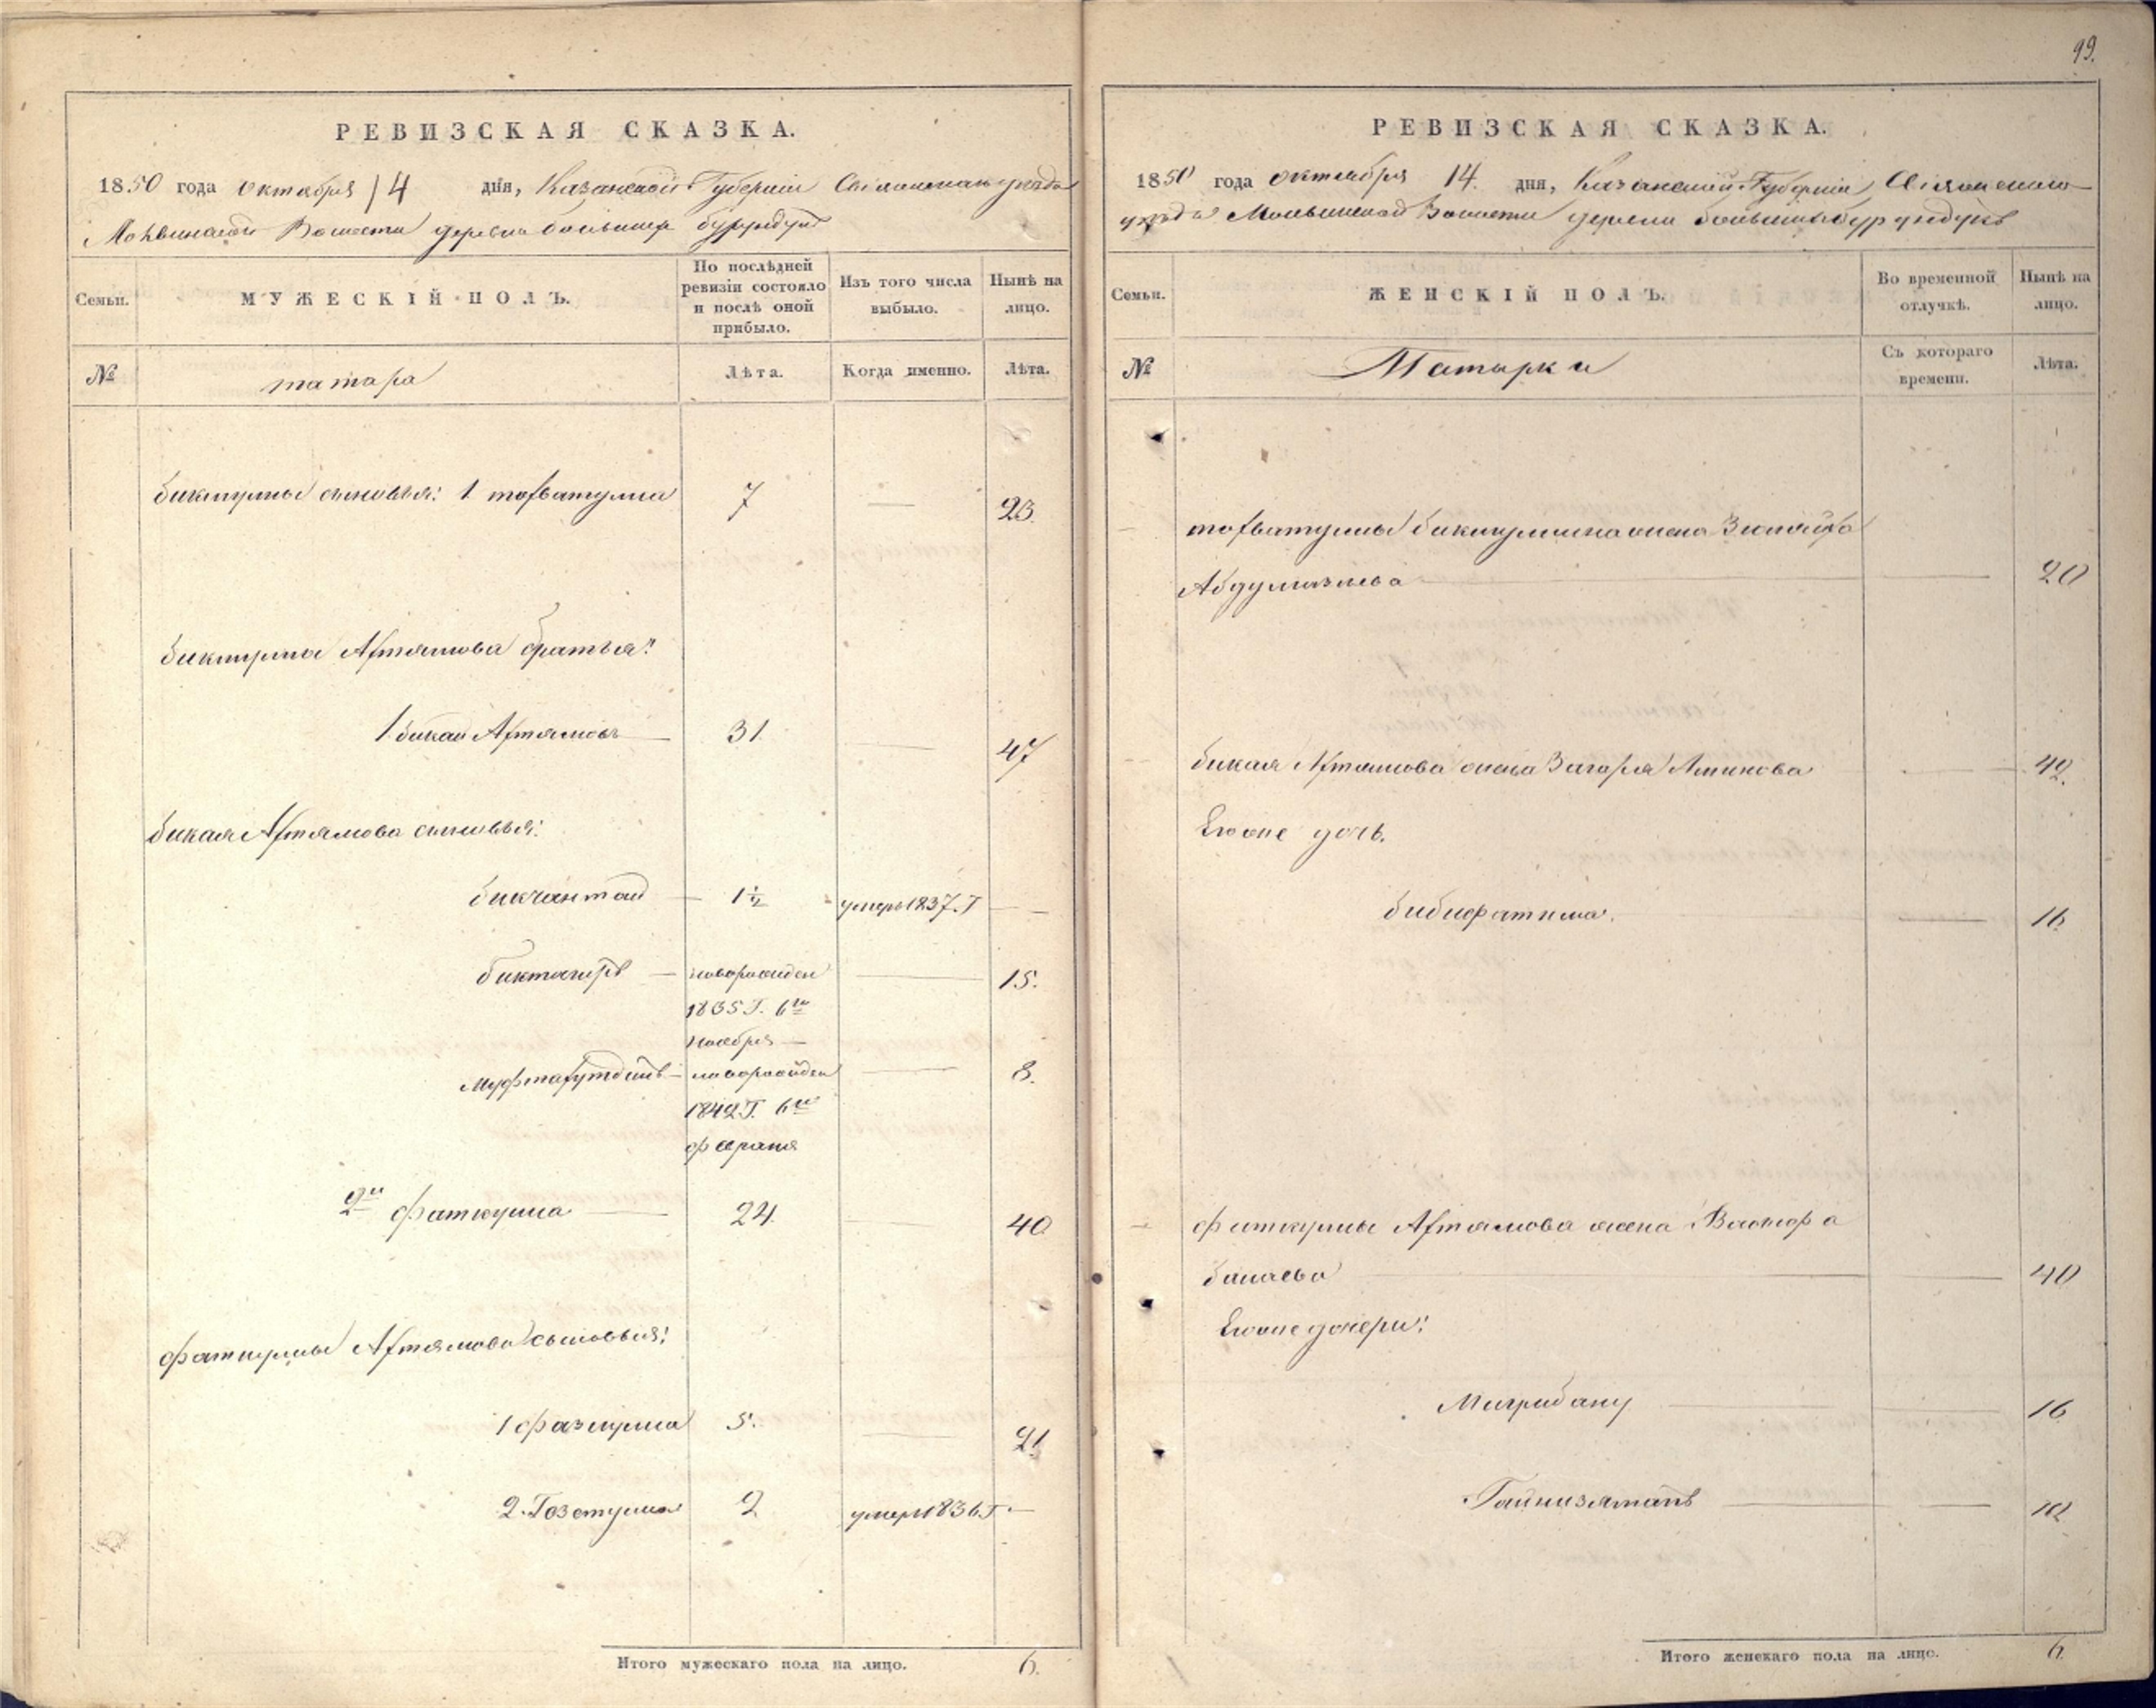 РЕВИЗСКАЯ СКАЗКА.
1850 года октября 14 дня, Казанской Губернии Свіяжскаго уезда
Волости деревни большихъ бурундукъ
Семьи.
МУЖЕСКІЙ ПОЛЪ.
По послѣдней ревизіи состояло и послѣ оной прибыло.
Изъ того числа выбыло.
Нынѣ на лицо.
№
татара
Лѣта.
Когда именно.
Лѣта.
биккулы сыновья: 1 тохватулла 7 — 23.
биккулы Ахтямова братья:
1 бикай Ахтямовъ — 31. — 47
бикая Ахтямова сыновья:
бикчантай — 1½ умеръ 1837. Г —
биктагиръ — новорожден — 15.
1835 Г. 6го
ноября —
Муфтахутдинъ — новорожден — 8.
1842 Г. 6го
февраля
2й фаткулла — 24. — 40
фаткуллы Ахтямова сыновья:
1 фазлулла 5. — 21.
2. 2 умеръ 1836. Г. —
Итого мужескаго пола на лицо. 6.
99.
РЕВИЗСКАЯ СКАЗКА.
1850 года октября 14. дня, Казанской Губерніи Свіяжскаго
уезда Волости деревни большихъ бурундукъ
Семьи.
ЖЕНСКІЙ ПОЛЪ.
Во временной отлучкѣ.
Нынѣ на лицо.
№
Татарки
Съ котораго времени.
Лѣта.
тохватуллы биккулина жена
— — 20
бикая Ахтямова жена Загаря Аминова — 42.
Егоже дочь.
бибифатима. — 16
фаткуллы Ахтямова жена
— — 40
Егоже дочери:
Мигрибану — 16
— — 12
Итого женскаго пола на лицо. 6